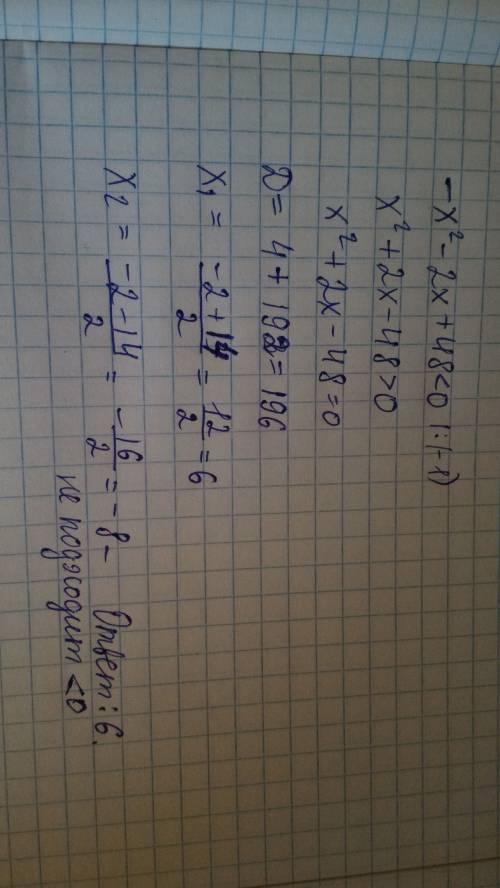 -x² - 2x + 48 < 0 | : (-1)
x² + 2x - 48 > 0
x² + 2x - 48 = 0
D = 4 + 192 = 196
x₁ = (-2 + 14)/2 = 12/2 = 6
x₂ = (-2 - 14)/2 = -16/2 = -8 - Ответ: 6.
не подходит < 0